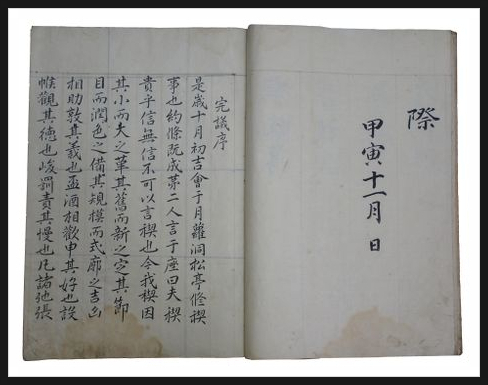 際
甲寅十一月 日
完議序
是歲十月初吉會于月蘿洞松亭修禊
事也約條旣成第二人言于座曰夫禊
貴乎信無信不可以言禊也今我禊因
其小而大之革其舊而新之定其節
目而潤色之備其規模而式廓之吉凶
相助敦其義也盃酒相歡申其好也設
帿觀其德也峻罰責其慢也凡諸弛張